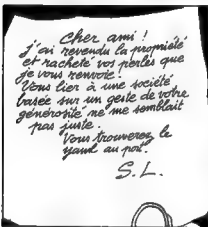 Cher ami !
j'ai revendu la propriété
et racheté vos perles que
je vous renvoie.
Vous lier à une société
basée sur un geste de votre
générosité ne me semblait
pas juste.
Vous trouverez le
yawl au port.
S.L.